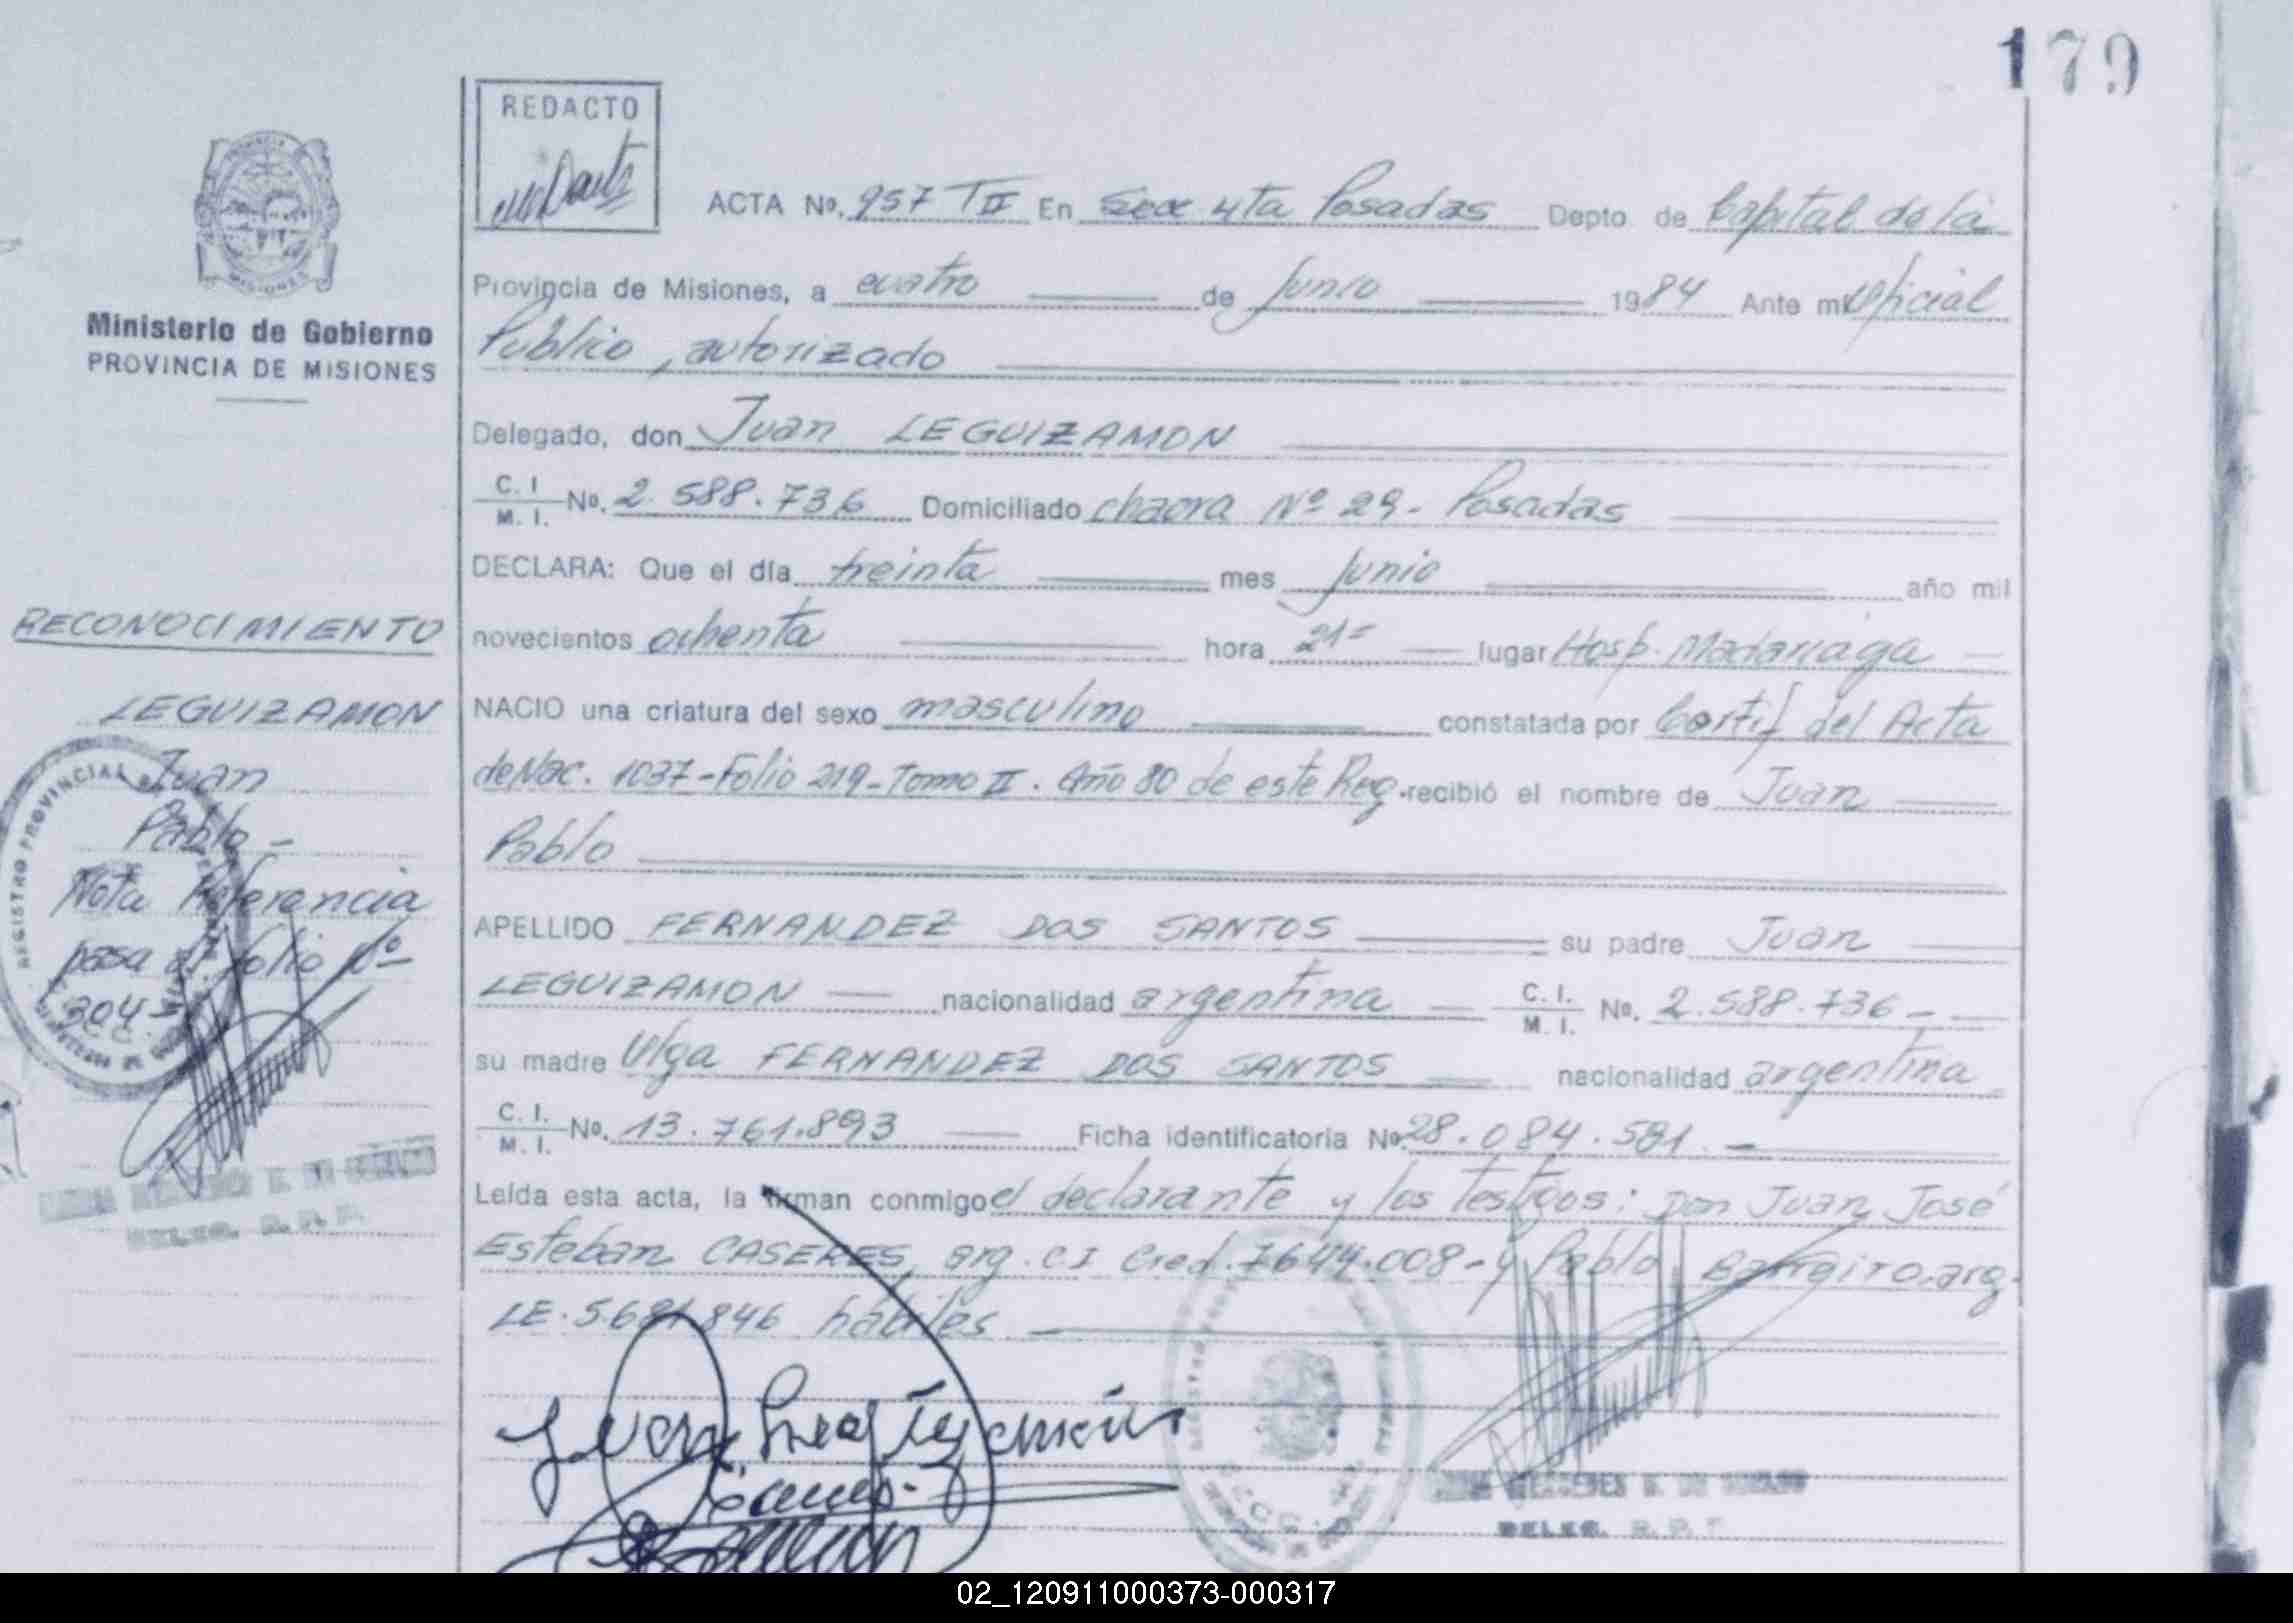 179
REDACTO
ACTA No. 957 T II En Secc 4ta Posadas Depto. de Capital de la
Provincia de Misiones, a cuatro de Junio 1984 Ante mi Oficial
Publico, autorizado
Delegado, don Juan LEGUIZAMON
C. I. M. I. No. 2.588.736 Domiciliado chacra Nº 29- Posadas
DECLARA: Que el día treinta mes Junio año mil
novecientos ochenta hora 21= lugar Hosp. Madariaga
NACIO una criatura del sexo masculino constatada por Certif del Acta
de Nac. 1037-Folio 219-Tomo II. Año 80 de este Reg. recibió el nombre de Juan
Pablo
APELLIDO FERNANDEZ DOS SANTOS su padre Juan
LEGUIZAMON nacionalidad argentina C. I. M. I. No. 2.588.736
su madre Olga FERNANDEZ DOS SANTOS nacionalidad argentina
C. I. M. I. No. 13.761.893 Ficha identificatoria No. 28.084.581.
Leída esta acta, la firman conmigo el declarante y los testigos: Don Juan José
Esteban CASERES, arg. C I Cred. 7644.008- y Pablo Barreiro, arg.
LE. 846 hábiles
Juan Leguizamón
DELEG. R. P. P.
PROVINCIA
MISIONES
Ministerio de Gobierno
PROVINCIA DE MISIONES
RECONOCIMIENTO
LEGUIZAMON
Juan
Pablo -
Nota Referencia
pasa al folio Nº
304-
REGISTRO PROVINCIAL
DELEG. R. P. P.
02_120911000373-000317